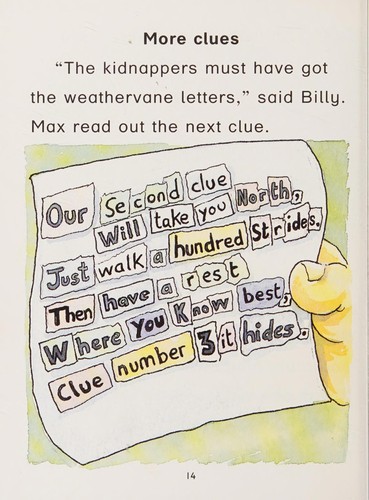 More clues
“The kidnappers must have got
the weathervane letters,” said Billy.
Max read out the next clue.
Our Second clue
Will take you North,
Just walk a hundred Strides.
Then have a rest
Where you Know best,
Clue number 3 it hides.
14